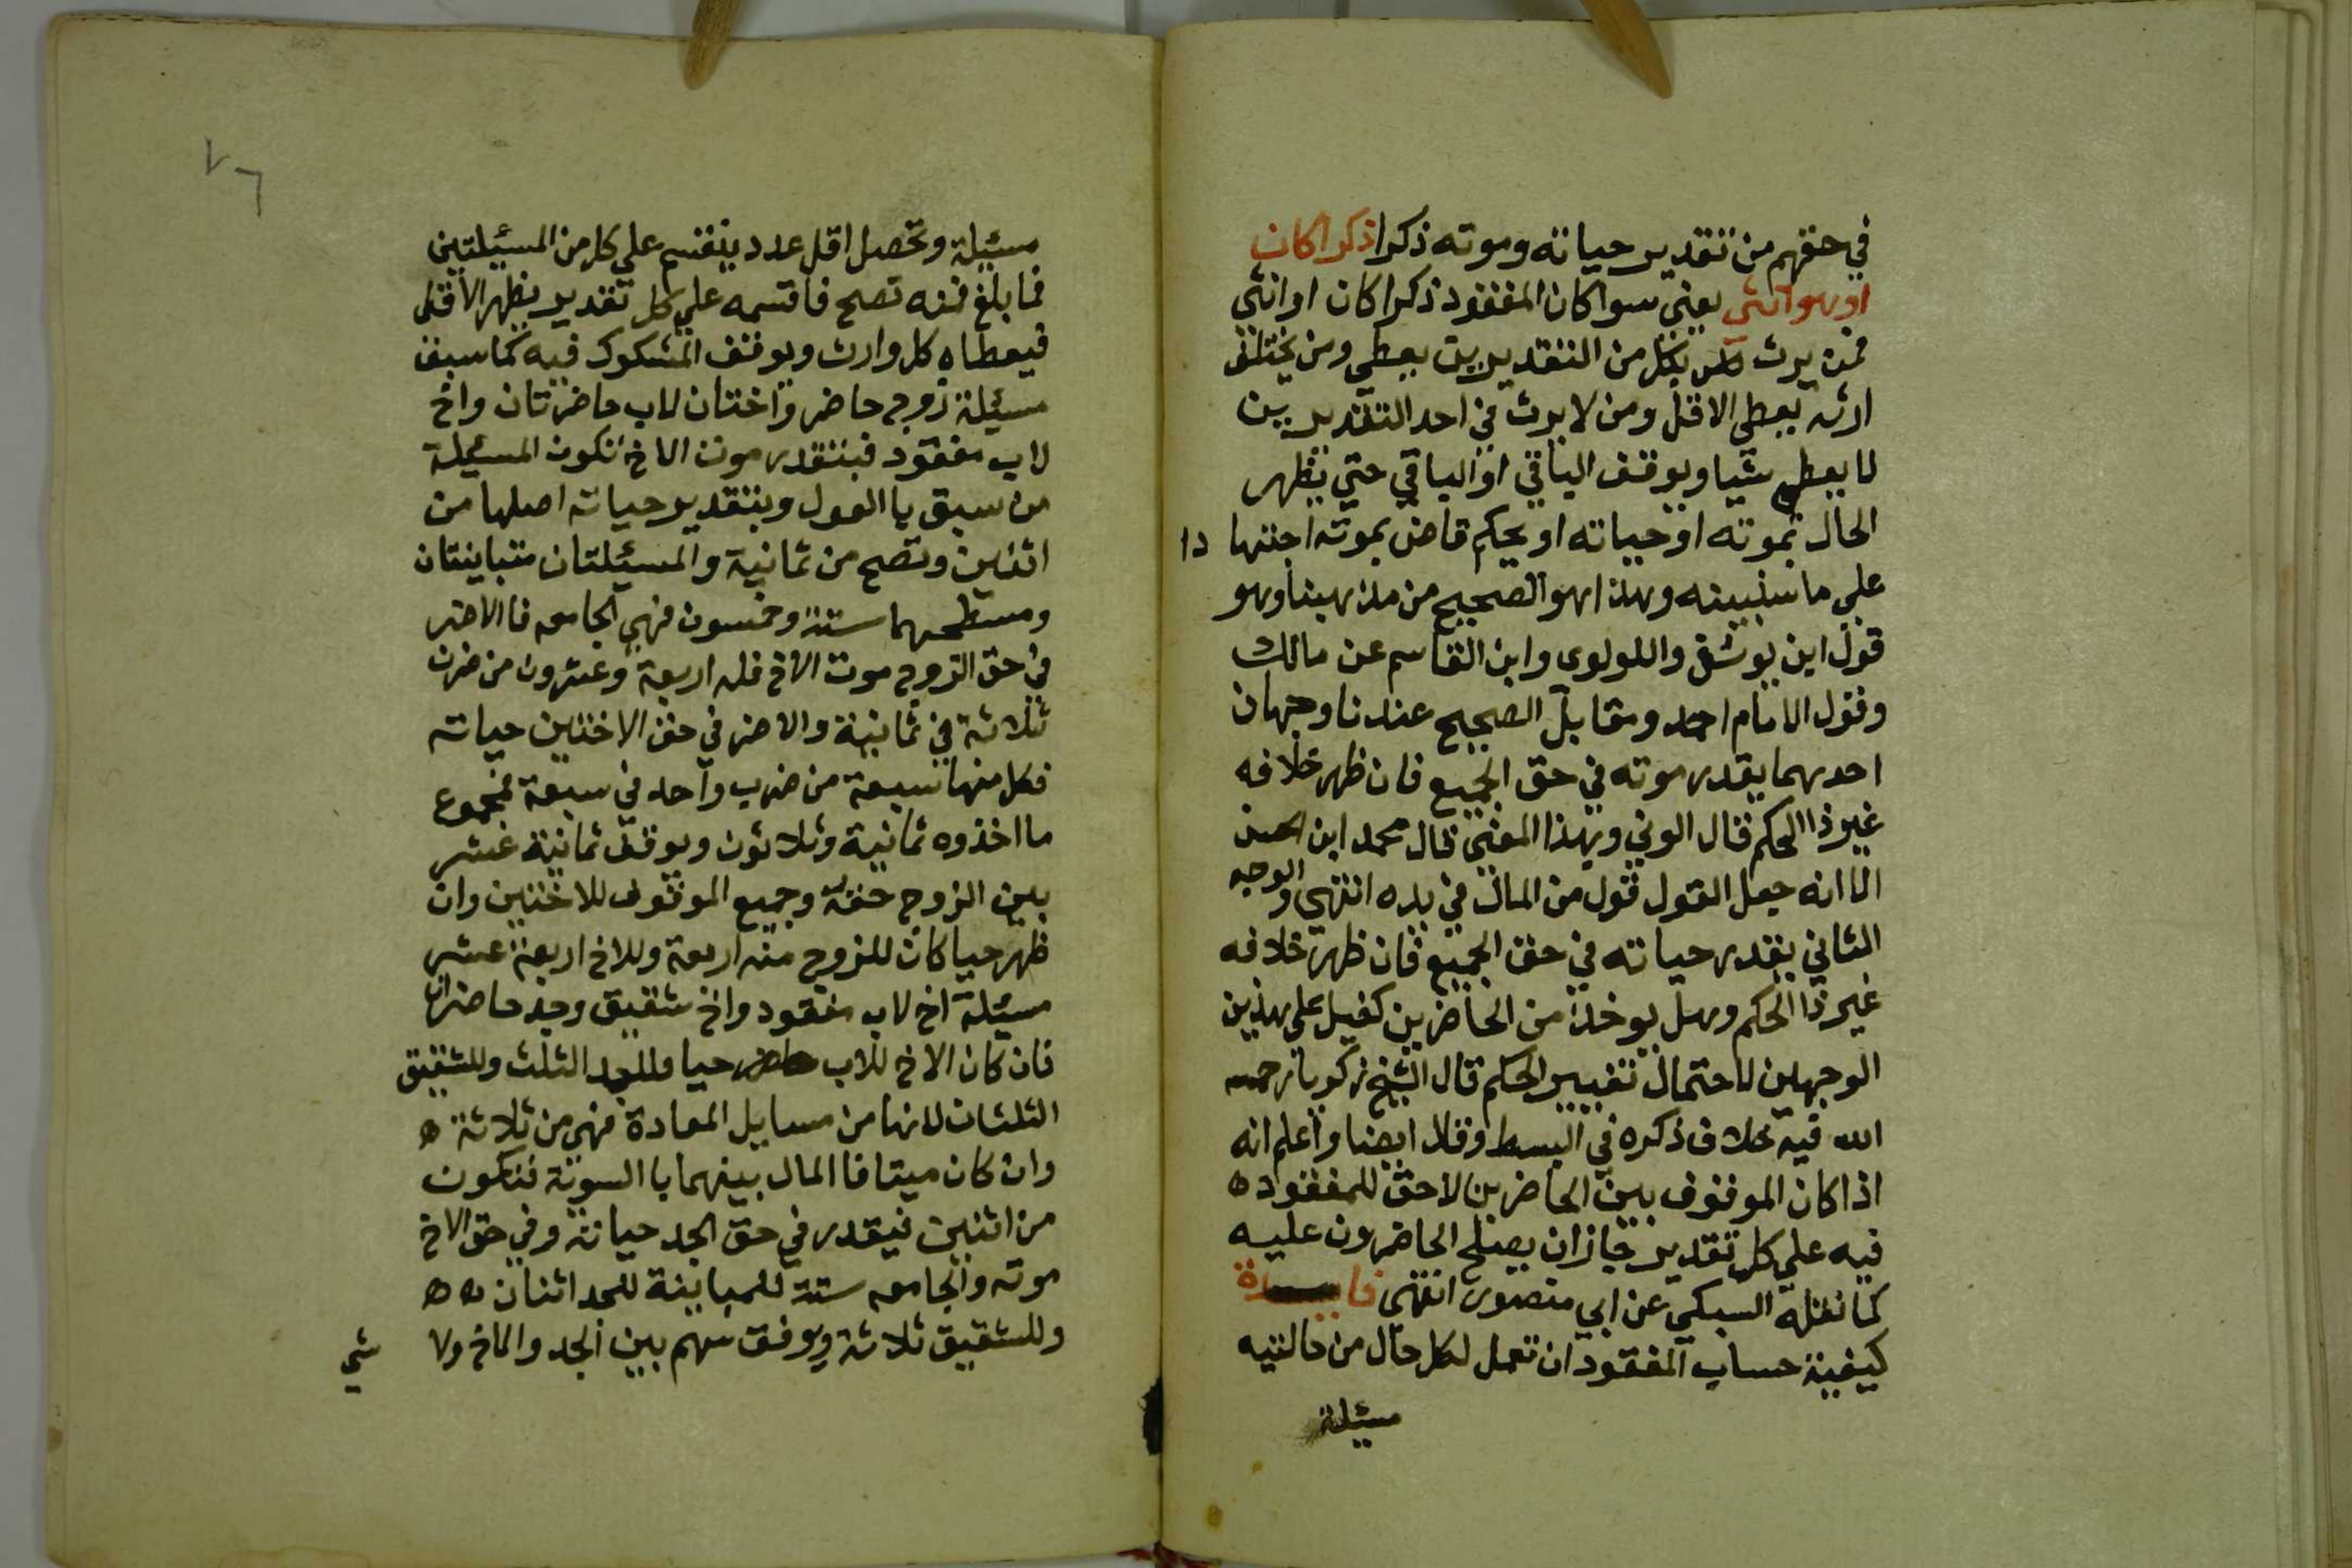 في حقهم من تقدير حياته وموته ذكرا ذكرا كان
او هو انثي يعني سوا كان المفقود ذكرا كان او انثي
فمن يرث بكل من التقديرين يعطي ومن يختلف
ارثه يعطي الاقل ومن لا يرث في احد التقديرين
لا يعطي شيا ويوقف الباقي او الباقي حتي يظهر
الحال بموته او حياته او يحكم قاض بموته اجتهادا
علي ما سنبينه وهذا هو الصحيح من مذهبنا وهو
قول ابن يوسف واللولوي وابن القاسم عن مالك
وقول الامام احمد ومقابل الصحيح عندنا وجهان
احدهما يقدر موته في حق الجميع فان ظهر خلافه
غيرذا الحكم قال الوني وبهذا المعني قال محمد ابن الحسن
الا انه جعل القول قول من المال في يده انتهي والوجه
الثاني يقدر حياته في حق الجميع فان ظهر خلافه
غيرذا الحكم وهل يوخذ من الحاضرين كفيل علي هذين
الوجهين لاحتمال تغيير الحكم قال الشيخ زكريا رحمه
الله فيه خلاف ذكره في البسط وقال ايضا واعلم انه
اذا كان الموقوف بين الحاضرين لا حق للمفقود ه
فيه علي كل تقدير جاز ان يصلح الحاضرون عليه
كما نقله السبكي عن ابي منصور انتهي فايدة
كيفية حساب المفقود ان تعمل لكل حال من حالتيه
مسئلة
٧٦
مسئلة وتحصل اقل عدد ينقسم علي كل من المسئلتين
فما بلغ فمنه تصح فاقسمه علي كل تقدير يظهر الاقل
فيعطاه كل وارث ويوقف المشكوك فيه كما سبق
مسئلة زوج حاضر واختان لاب حاضرتان واخ
لاب مفقود فبتقدير موت الاخ تكون المسئلة
من سبق يا العول وبتقدير حياته اصلها من
اثنين وتصح من ثمانية والمسئلتان متباينتان
ومسطحهما ستة وخمسون فهي الجامعه فا الاضر
في حق الزوج موت الاخ فله اربعة وعشرون من ضرب
ثلاثة في ثمانية والاضر في حق الاختين حياته
فكل منها سبعة من ضرب واحد في سبعة فمجموع
ما اخذوه ثمانية وثلاثون ويوقف ثمانية عشر
بين الزوج حقه وجميع الموقوف للاختين وان
ظهر حيا كان للزوج منه اربعة وللاخ اربعة عشر
مسئلة اخ لاب مفقود واخ شقيق وجد حاضران
فان كان الاخ للاب حيا فللجد الثلث وللشقيق
الثلثان لانها من مسايل المعادة فهي من ثلاثة ه
وان كان ميتا فا المال بينهما با السوية فتكون
من اثنين فيقدر في حق الجد حياته وفي حق الاخ
موته والجامعه ستة للمباينة للجد اثنان ه ه
وللشقيق ثلاثة ويوقف سهم بين الجد والاخ ولا
شي